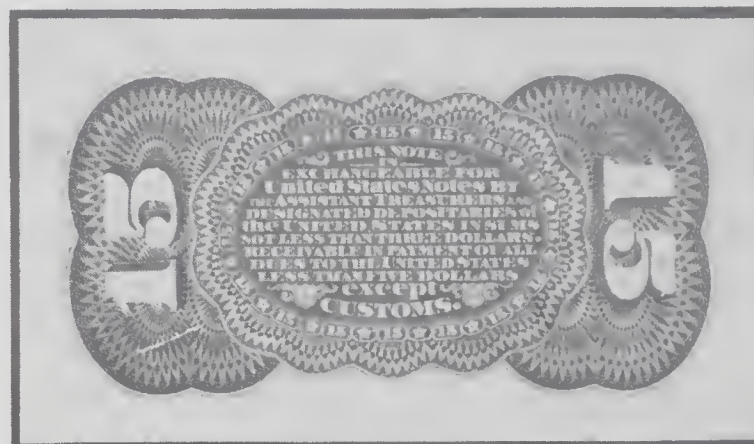 15
★ 15 ★ 15 ★
THIS NOTE
IS
EXCHANGEABLE FOR
United States Notes BY
THE ASSISTANT TREASURERS AND
DESIGNATED DEPOSITARIES OF
THE UNITED STATES IN SUMS
NOT LESS THAN THREE DOLLARS.
RECEIVABLE IN PAYMENT OF ALL
DUES TO THE UNITED STATES
LESS THAN FIVE DOLLARS
except
CUSTOMS.
15 ★ 15 ★ 15 ★ 15 ★ 15
15